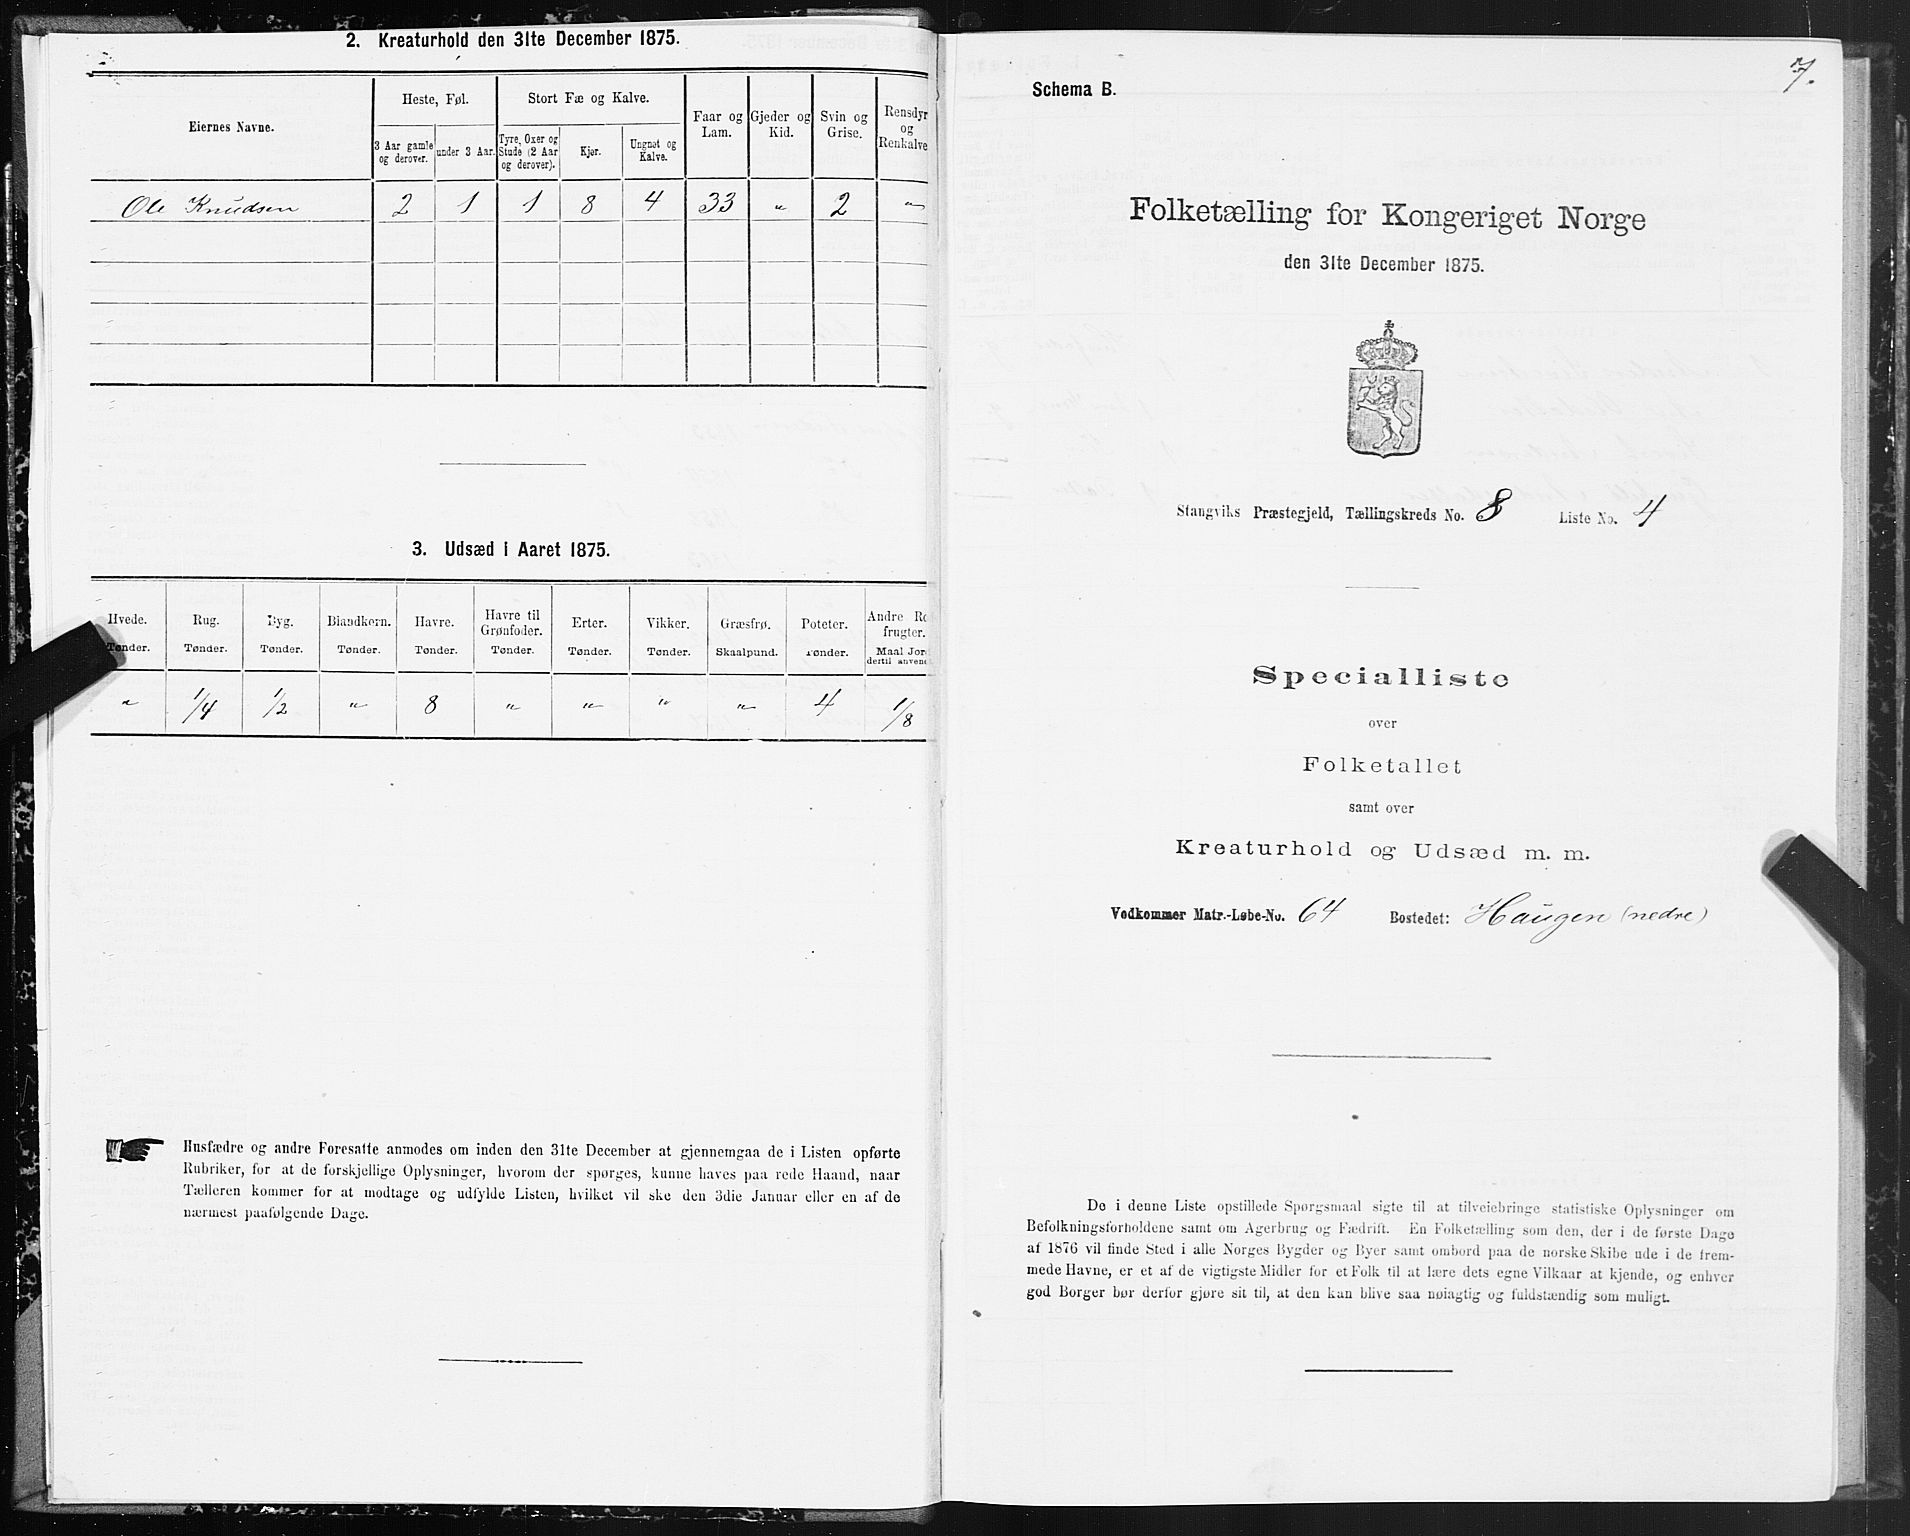 2. Kreaturhold den 31te December 1875.
Eiernes Navne.
Heste, Føl.
Stort Fæ og Kalve.
Faar og Lam.
Gjeder og Kid.
Svin og Grise.
Rensdyr og Renkalve
3 Aar gamle og derover.
under 3 Aar.
Tyre, Oxer og Stude (2 Aar og derover).
Kjør.
Ungnøt og Kalve.
Ole Knudsen 2 1 1 8 4 33 " 2 "
3. Udsæd i Aaret 1875.
Hvede. Rug. Byg. Blandkorn. Havre. Havre til Grønfoder. Erter. Vikker. Græsfrø. Poteter. Andre Ro frugter.
Tønder. Tønder. Tønder. Tønder. Tønder. Tønder. Tønder. Tønder. Skaalpund. Tønder. Maal Jor dertil anvend
" 1/4 1/2 " 8 " " " " 4 1/8
Husfædre og andre Foresatte anmodes om inden den 31te December at gjennemgaa de i Listen opførte
Rubriker, for at de forskjellige Oplysninger, hvorom der spørges, kunne haves paa rede Haand, naar
Tælleren kommer for at modtage og udfylde Listen, hvilket vil ske den 3die Januar eller en af de
nærmest paafølgende Dage.
7.
Schema B.
Folketælling for Kongeriget Norge
den 31te December 1875.
Stangviks Præstegjeld, Tællingskreds No. 8 Liste No. 4
Specialliste
over
Folketallet
samt over
Kreaturhold og Udsæd m. m.
Vedkommer Matr.-Løbe-No. 64 Bostedet: Haugen (nedre)
De i denne Liste opstillede Spørgsmaal sigte til at tilveiebringe statistiske Oplysninger om
Befolkningsforholdene samt om Agerbrug og Fædrift. En Folketælling som den, der i de første Dage
af 1876 vil finde Sted i alle Norges Bygder og Byer samt ombord paa de norske Skibe ude i de frem-
mede Havne, er et af de vigtigste Midler for et Folk til at lære dets egne Vilkaar at kjende, og enhver
god Borger bør derfor gjøre sit til, at den kan blive saa nøiagtig og fuldstændig som muligt.